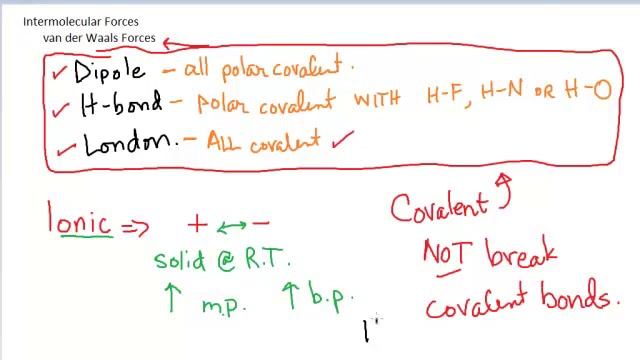 Intermolecular Forces
van der Waals Forces
✓ Dipole – all polar covalent.
✓ H-bond – Polar covalent WITH H-F, H-N OR H-O
✓ London. – ALL covalent ✓
Ionic => + ↔ –
solid @ R.T.
↑ m.p. ↑ b.p.
Covalent ↑
NOT break
covalent bonds.